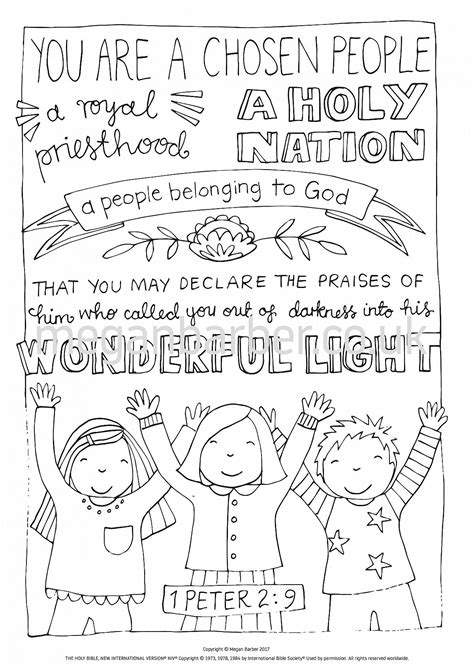 YOU ARE A CHOSEN PEOPLE
a royal
priesthood
A HOLY
NATION
a people belonging to God
THAT YOU MAY DECLARE THE PRAISES OF
him who called you out of darkness into his
meganbarber.co.uk
WONDERFUL LIGHT
1 PETER 2:9
Copyright © Megan Barber 2017
THE HOLY BIBLE, NEW INTERNATIONAL VERSION® NIV® Copyright © 1973, 1978, 1984 by International Bible Society® Used by permission. All rights reserved worldwide.